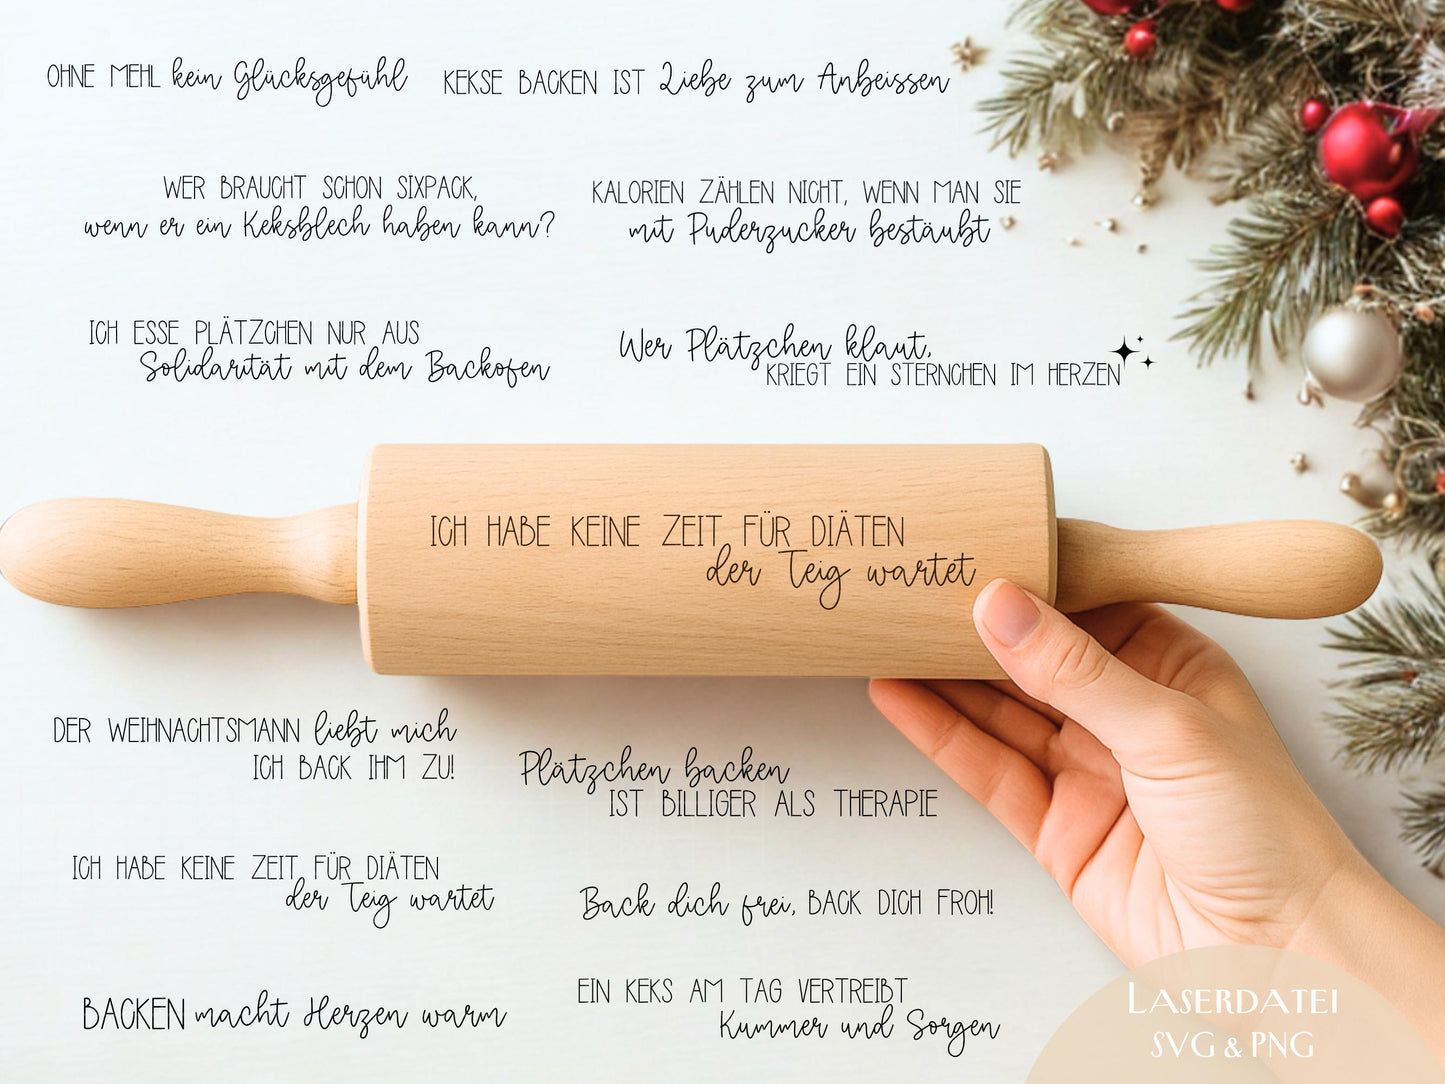 OHNE MEHL kein Glücksgefühl
KEKSE BACKEN IST Liebe zum Anbeissen
WER BRAUCHT SCHON SIXPACK,
wenn er ein Keksblech haben kann?
KALORIEN ZÄHLEN NICHT, WENN MAN SIE
mit Puderzucker bestäubt
ICH ESSE PLÄTZCHEN NUR AUS
Solidarität mit dem Backofen
Wer Plätzchen klaut,
KRIEGT EIN STERNCHEN IM HERZEN
ICH HABE KEINE ZEIT FÜR DIÄTEN
der Teig wartet
DER WEIHNACHTSMANN liebt mich
ICH BACK IHM ZU!
Plätzchen backen
IST BILLIGER ALS THERAPIE
ICH HABE KEINE ZEIT FÜR DIÄTEN
der Teig wartet
Back dich frei, BACK DICH FROH!
BACKEN macht Herzen warm
EIN KEKS AM TAG VERTREIBT
Kummer und Sorgen
LASERDATEI
SVG & PNG